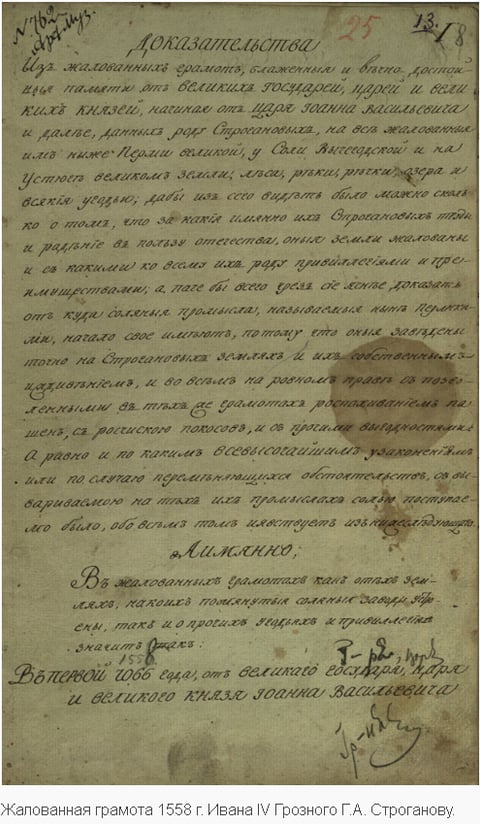 N 762
25
13. 18
Доказательства
Изъ жалованныхъ грамотъ, блаженныя и вѣчно достой
ныя памяти отъ великихъ государей, царей и вели
кихъ князей, начиная отъ царя Iоанна Васильевича
и далѣе, данныхъ роду Строгановыхъ, на всѣ жалованныя
имъ ниже Перми великой, у Соли Вычегодской и на
Устюгѣ великомъ земли; лѣса, рѣки, рѣчки, озера и
всякiя угодьи; дабы изъ сего видѣть было можно сколь
ко о томъ, что за какiя имянно ихъ Строгановыхъ труды
и радѣнiе въ пользу отечества, оныя земли жалованы
и съ какими ко всему ихъ роду привиллегiями и пре
имуществами; а паче бы всего чрезъ сiе яснѣе доказать
отъ куда соляныя промысла, называемыя нынѣ Пермски
мiи, начало свое имѣютъ, потому что оныя заведены
точно на Строгановыхъ земляхъ и ихъ собственнымъ
иждивѣнiемъ, и во всѣмъ на ровномъ правѣ съ позво
ленными въ тѣхъ же грамотахъ роспахиванiемъ па
шенъ, съ росчискою покосовъ, и съ прочими выгодностями.
А равно и по какимъ всевысочайшимъ узаконенiямъ
или по случаю перемѣняющихся обстоятельствъ, съ вы
вариваемою на тѣхъ ихъ промыслахъ солью поступае
мо было, обо всѣмъ томъ явствуетъ изъ нижеслѣдующаго.
А имянно;
Въ жалованныхъ грамотахъ какъ о тѣхъ зем
ляхъ, на коихъ помянутыя соляныя заводы
рены, такъ и о прочихъ угодьяхъ и привиллегiяхъ
значитъ такъ:
1558
Въ первой 7066 года, отъ великаго государя, царя
и великого князя Iоанна Васильевича
Жалованная грамота 1558 г. Ивана IV Грозного Г.А. Строганову.